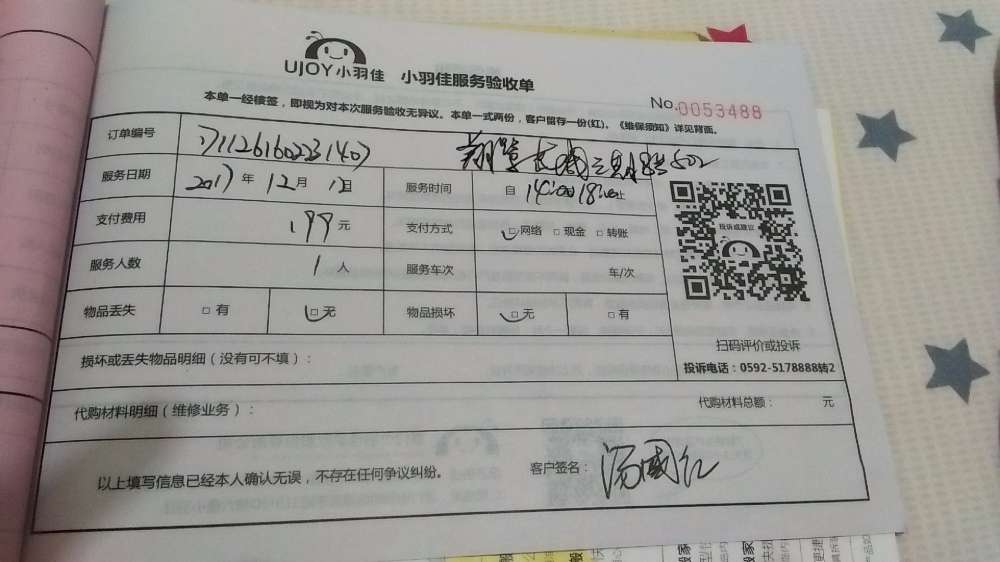 UJOY小羽佳 小羽佳服务验收单
No.0053488
本单一经核签，即视为对本次服务验收无异议。本单一式两份，客户留存一份(红)。《维保须知》详见背面。
订单编号
服务日期 2017年12月1日 服务时间 自14:00 18:00止
投诉或建议
支付费用 199元 支付方式 □网络 □现金 □转账
服务人数 1人 服务车次 车/次
物品丢失 □有 □无 物品损坏 □无 □有
扫码评价或投诉
损坏或丢失物品明细（没有可不填）：
投诉电话：0592-5178888转2
代购材料明细（维修业务）： 代购材料总额： 元
以上填写信息已经本人确认无误，不存在任何争议纠纷。 客户签名：汤国红